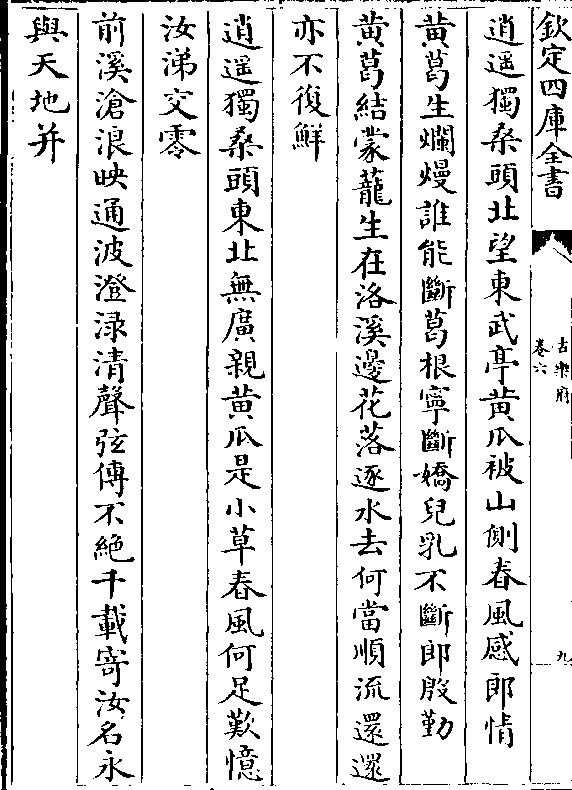 欽定四庫全書
古樂府
卷六
九
逍遥獨桑頭北望東武亭黄瓜被山側春風感郎情
黄葛生爛熳誰能斷葛根寧斷嬌兒乳不斷郎殷勤
黄葛結蒙蘢生在洛溪邊花落逐水去何當順流還還
亦不復鮮
逍遥獨桑頭東北無廣親黄瓜是小草春風何足歎憶
汝涕交零
前溪滄浪映通波澄渌清聲弦傳不絶千載寄汝名永
與天地并